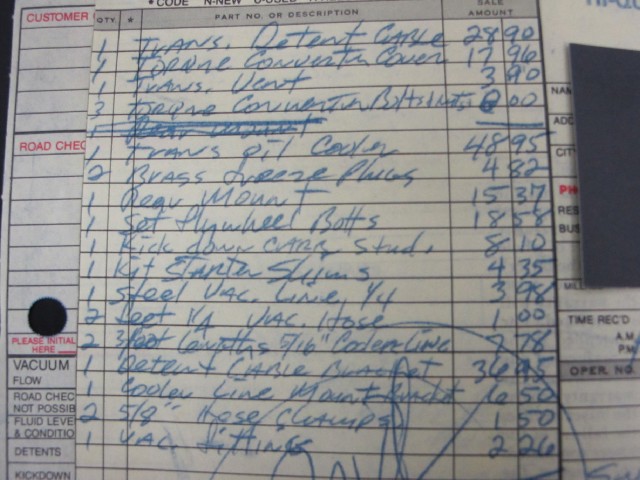 * CODE N-NEW
CUSTOMER QTY. * PART NO. OR DESCRIPTION SALE AMOUNT
1 TRANS. Detent CABLE 28 90
1 TORQUE Converter Cover 17 96
1 TRANS. Vent 3 90
3 TORQUE Converter Bolts 00
ROAD CHEC 1 TRANS oil Cooler 48 95
2 BRASS Freeze Plugs 4 82
1 Rear Mount 15 37
1 Set Flywheel Bolts 18 58
1 Kick down CARB Stud. 8 10
1 Kit Starter Shims 4 35
1 Steel VAC. Line, 1/4 3 98
2 foot 1/4 VAC. Hose 1 00
2 3 foot Lengths 5/16" Cooler Line 7 78
1 Detent CABLE Bracket 36 95
1 Cooler Line Mount 6 50
2 5/8" Hose Clamps 1 50
1 VAC fittings 2 26
PLEASE INITIAL
HERE
VACUUM
FLOW
ROAD CHEC
NOT POSSIB
FLUID LEVE
& CONDITIO
DETENTS
KICKDOWN
NAM
ADD
CIT
PH
RES
BUS
MILE
TIME REC'D
A.M.
P.M.
OPER. NO.